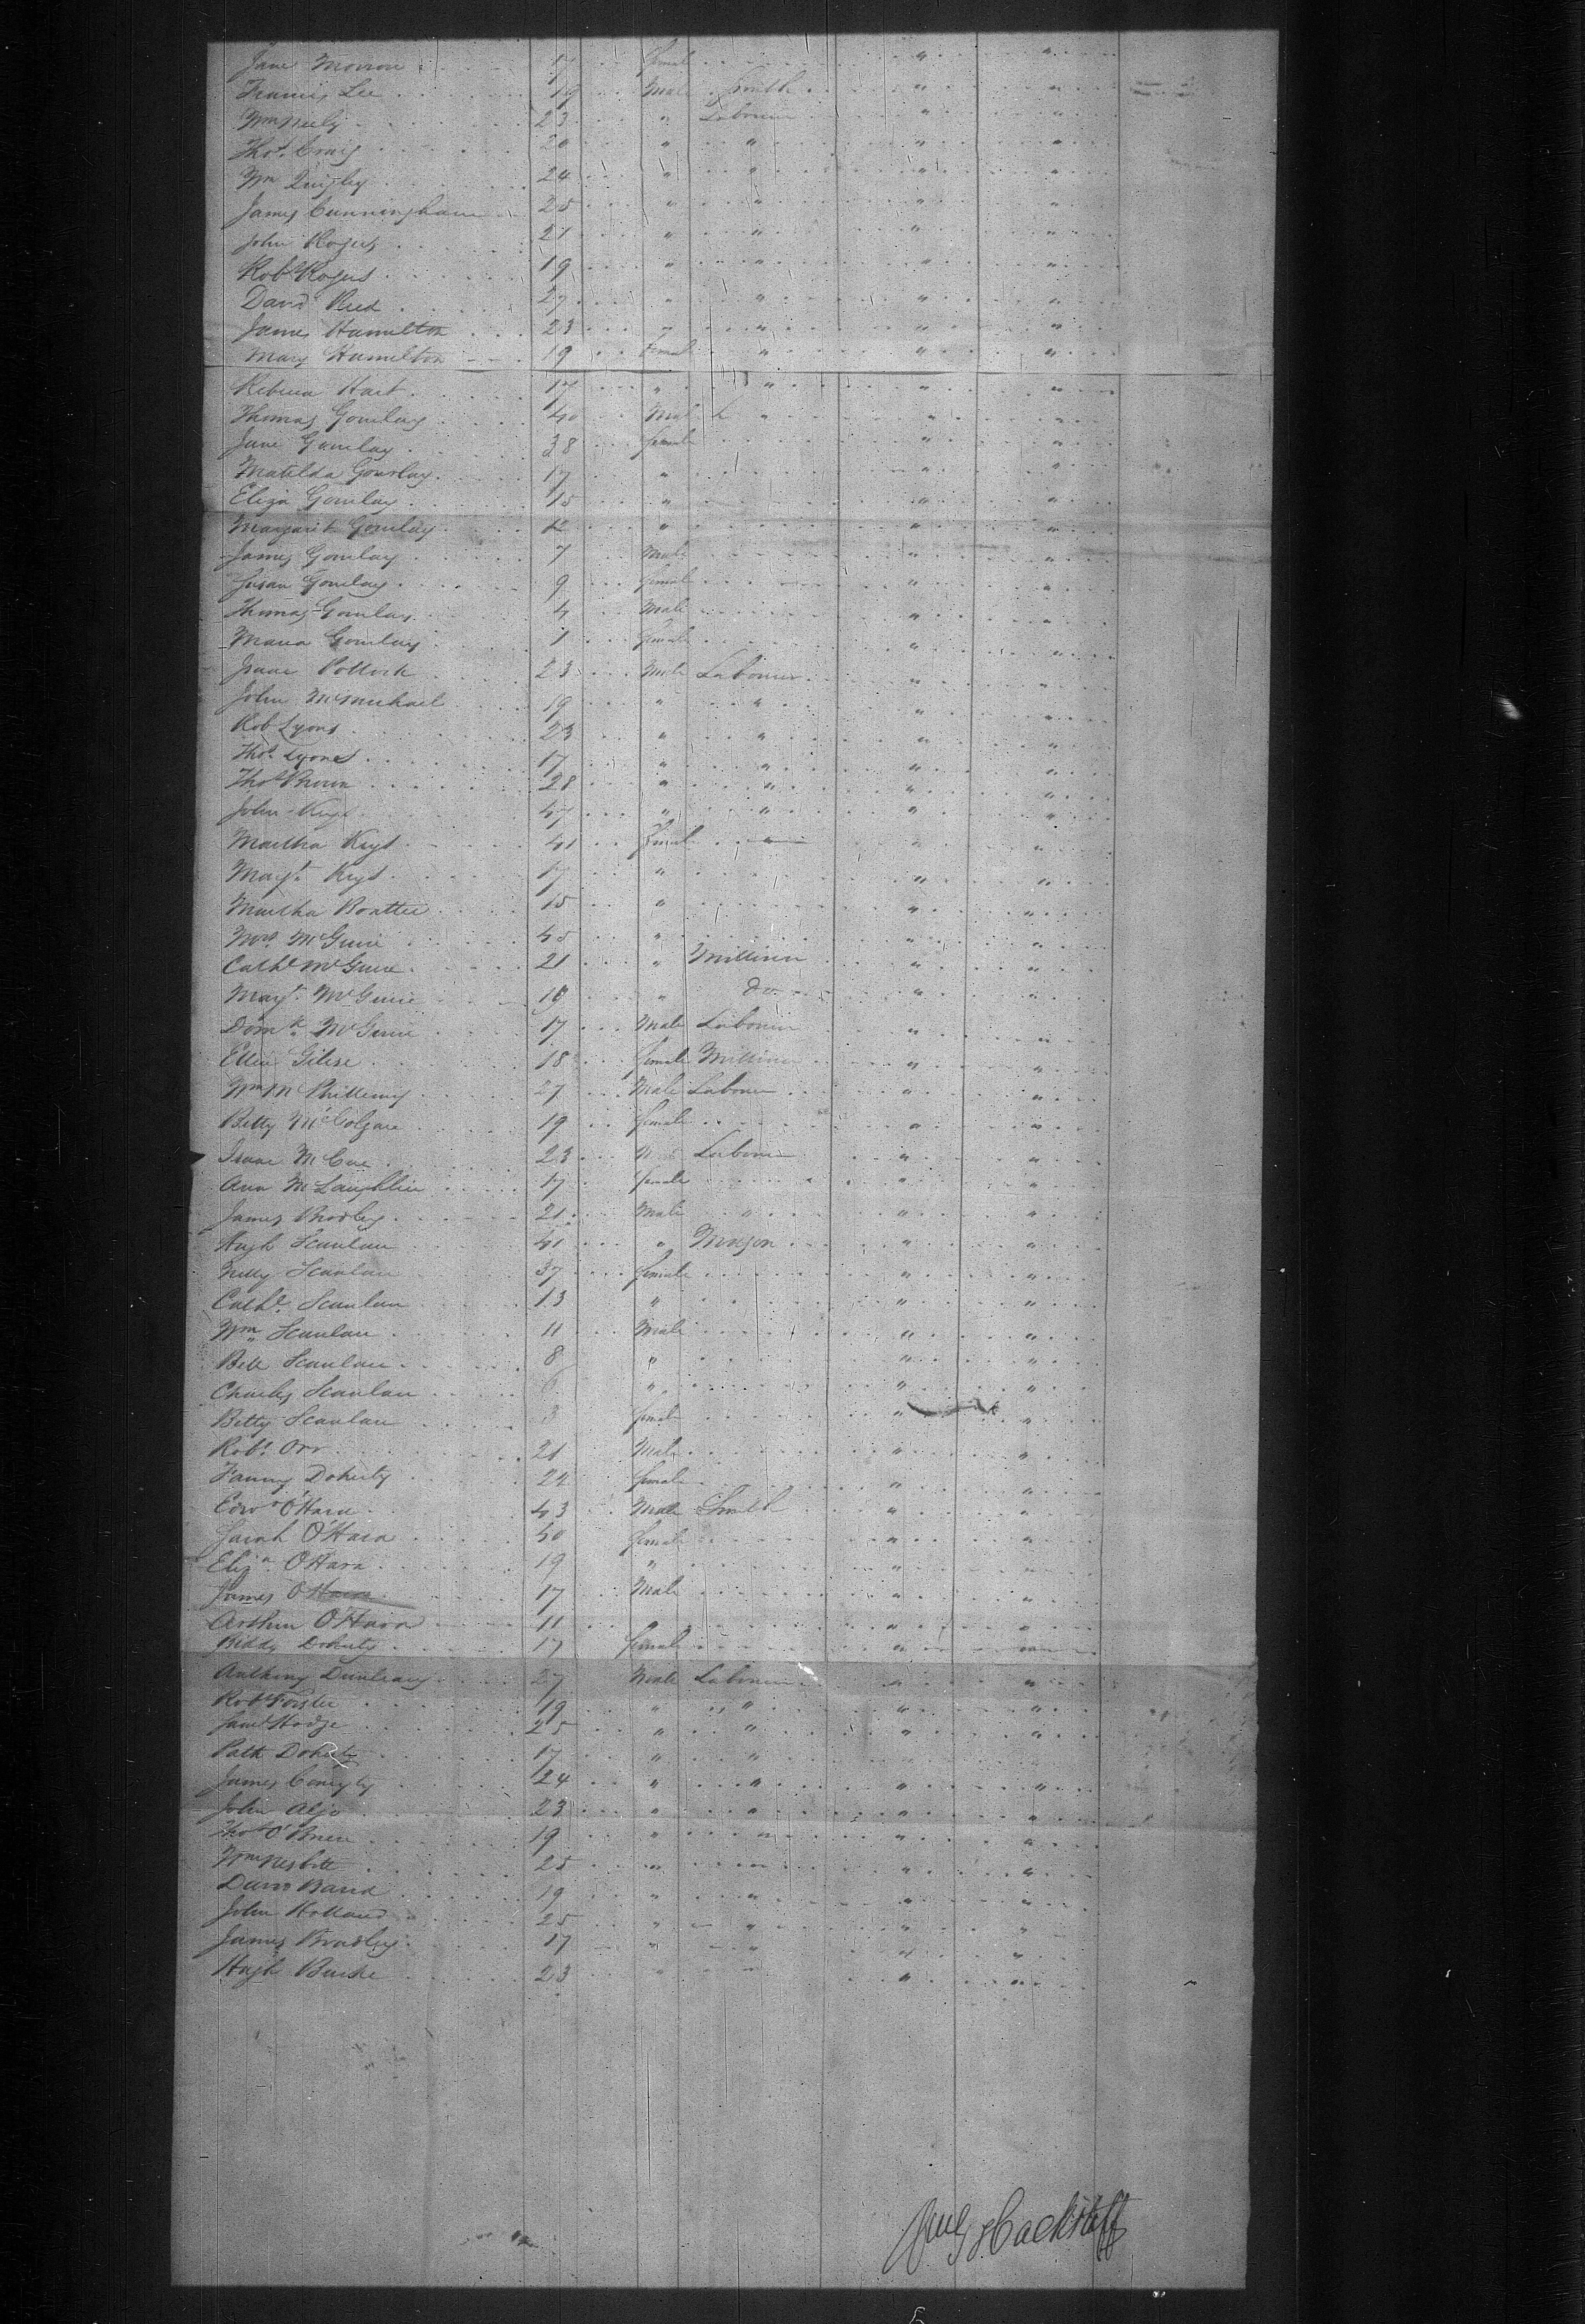 Jane Morrow 17 female " "
Francis Lee 19 Male Smith " "
Wm Neely 23 " Labourer " "
Thos. Craig 20 " " " "
Wm Quigley 24 " " " "
James Cunningham 25 " " " "
John Rogers 21 " " " "
Robt Rogers 19 " " " "
David Reed 27 " " " "
James Hamilton 23 " " " "
Mary Hamilton 19 Female " " "
Rebecca Hart 17 " " " "
Thomas Gourlay 40 Male " " "
Jane Gourlay 38 female " "
Matilda Gourlay 17 " " "
Eliza Gourlay 15 " " "
Margaret Gourlay 12 " " "
James Gourlay 7 Male " "
Susan Gourlay 9 female " "
Thomas Gourlay 4 Male " "
Maria Gourlay 1 female " "
Isaac Pollock 23 Male Labourer " "
John McMichael 19 " " " "
Rob Lyons 23 " " " "
Thos. Lyons 17 " " " "
Thos Brown 28 " " " "
John Keys 47 " " " "
Martha Keys 41 Female " "
Magt. Keys 17 " " "
Martha 15 " " "
Mrs. McGuire 45 " " "
Cathe McGuire 21 " Milliner " "
Magt. McGuire " Do " "
Domk. McGuire 17 Male Labourer " "
Ellen 18 female Milliner " "
Wm 27 Male Labourer " "
Betty McColgan 19 female " "
Isaac McCue 23 Male Labourer " "
Ann McLaughlin 17 female " "
James Bradley 21 Male " " "
Hugh Scanlan 41 " Mason " "
Nelly Scanlan 37 female " "
Cathe. Scanlan 13 " " "
Wm Scanlan 11 Male " "
Bell Scanlan 8 " " "
Charles Scanlan 6 " " "
Betty Scanlan 3 female " "
Robt. Orr 21 Male " "
Fanny Doherty 22 female " "
Edwd O'Hara 43 Male Smith " "
Sarah O'Hara 40 female " "
Eliza. O'Hara 19 " " "
James O'Hara 17 Male " "
Arthur O'Hara 11 " " "
Biddy Doherty 17 female " "
Anthony Dunleavy 27 Male Labourer " "
Robt Forster 19 " " " "
Saml Hodge 25 " " " "
Patk Doherty 17 " "
James 24 " " " "
John Algo 23 " " " "
Thos O'Brien 19 " " " "
Wm Nesbitt 25 " " " "
Baird 19 " " " "
John Holland 25 " " " "
James Bradley 17 " " " "
Hugh Burke 23 " " " "
Hackstaff